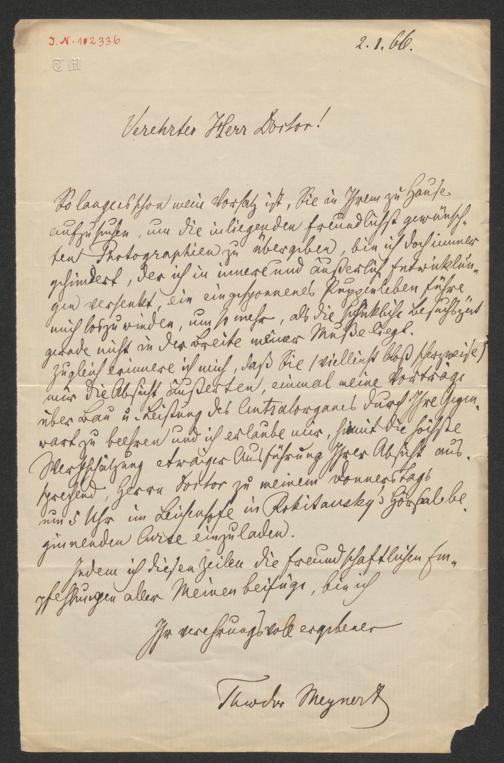 J.N. 102336
2. 1. 66.
T M
Verehrter Herr Doctor!
So lange es schon mein Vorsatz ist, Sie in Ihrem zu Hause
aufzusuchen, um die inliegenden freundlichst gewünsch-
ten Photographien zu übergeben, bin ich doch immer
gehindert, der ich in innere und äußerlich Entwicklun-
gen versenkt ein eingesponnenes Puppenleben führe
mich loszuwinden, um so mehr, als die schickliche Besuchszeit
gerade nicht in der Breite meiner Muße liegt.
Zugleich erinnere ich mich, daß Sie (vielleicht bloß scherzweise)
mir die Absicht äußerten, einmal meine Vorträge
über Bau u. Leistung des Centralorganes durch Ihre Gegen-
wart zu beehren und ich erlaube mir, hiemit die höchste
Werthschätzung etwaiger Ausführung Ihrer Absicht aus-
sprechend, Herrn Doctor zu meinem Donnerstags
um 5 Uhr im Leichenhofe in Rokitansky's Hörsaal be-
ginnenden Curse einzuladen.
Indem ich diesen Zeilen die freundschaftlichen Em-
pfehlungen aller Meinen beifüge, bin ich
Ihr verehrungsvoll ergebener
Theodor Meynert